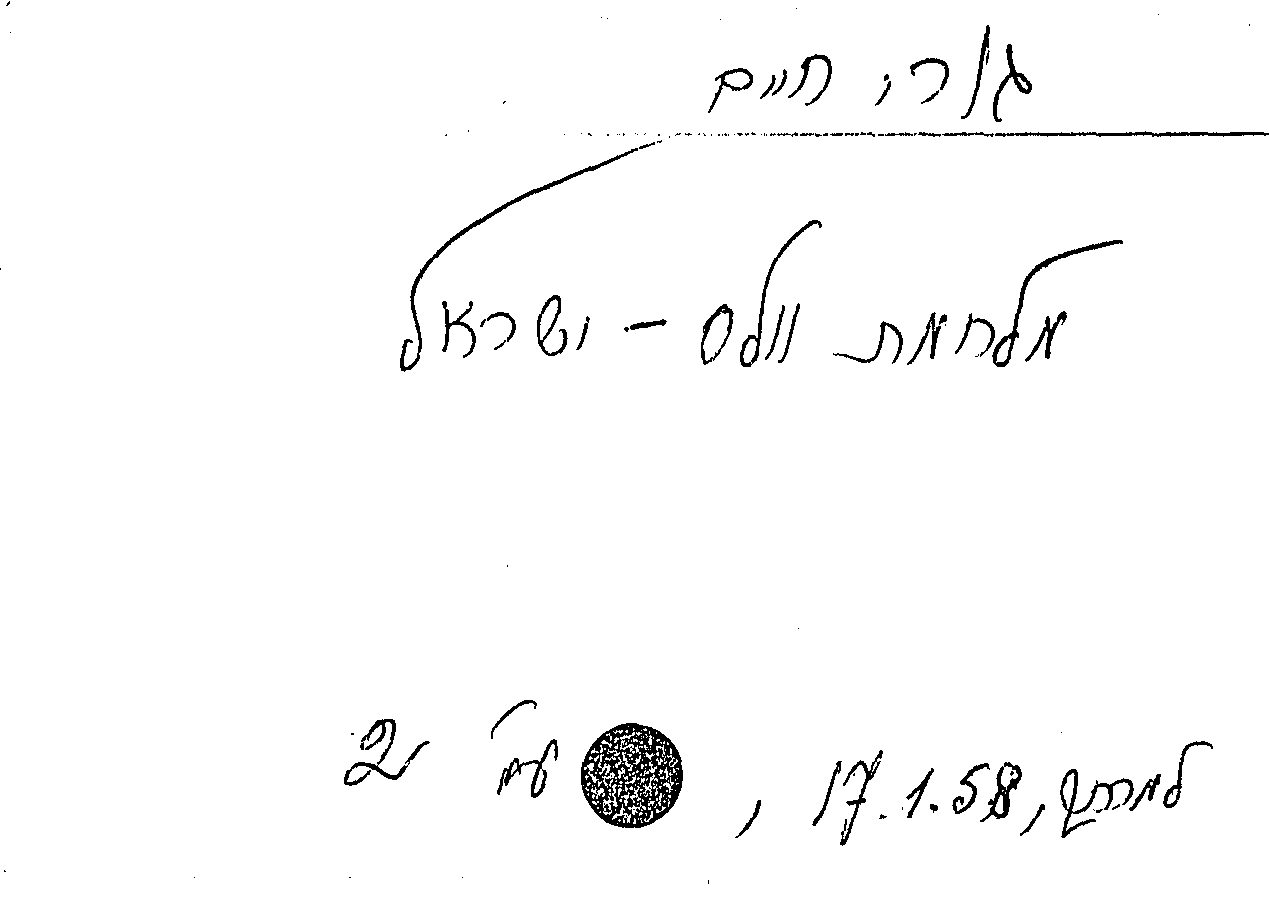 גורי, חיים
מלחמת וולס - ישראל
למרחב, 17.1.58, עמ' 2